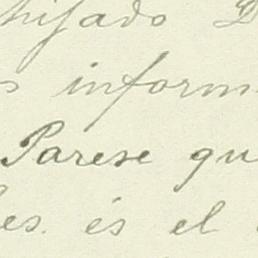 hijado D
s inform
Parese qu
les. és el